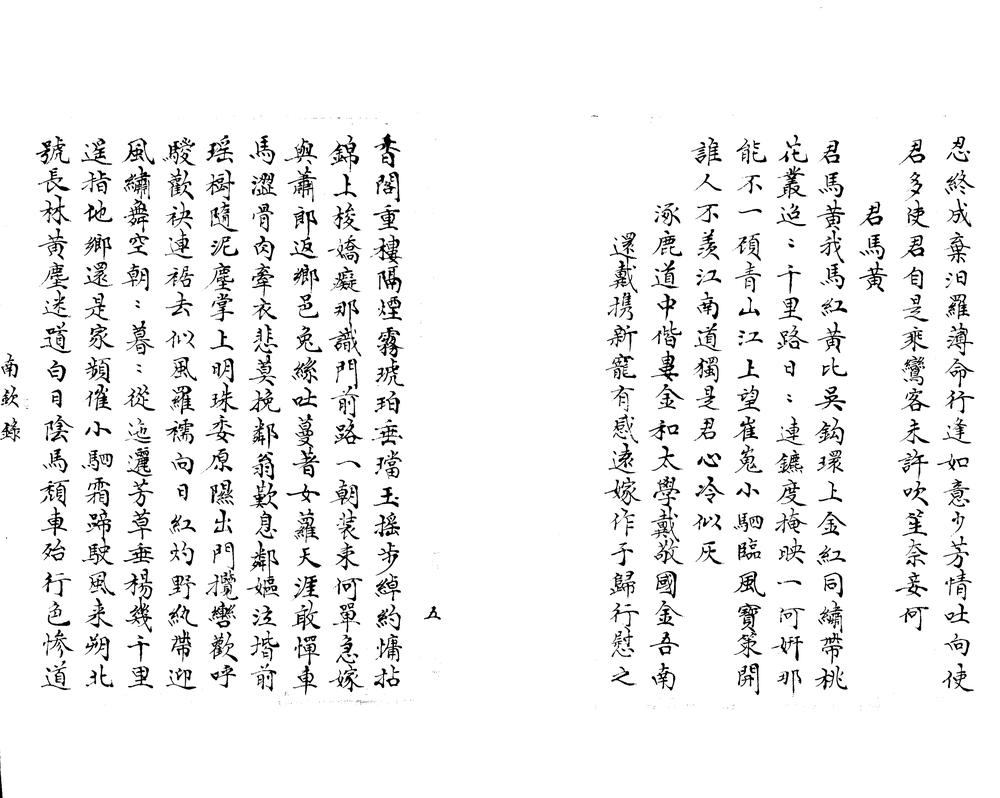 忍終成棄汨羅薄命行逢如意少芳情吐向使
君多使君自是乘鸞客未許吹笙奈妾何
君馬黃
君馬黃我馬紅黃比吳鈎環上金紅同繡帶桃
花叢迨〻千里路日〻連鑣度掩映一何妍那
能不一顧青山江上望崔嵬小駟臨風寶策開
誰人不羨江南道獨是君心冷似灰
涿鹿道中偕婁金和太學戴敬國金吾南
還戴携新寵有感遠嫁作于歸行慰之
五
香閣重樓隔煙霧琥珀垂璫玉搖步綽約慵拈
錦上梭嬌癡那識門前路一朝裝束何單急嫁
與蕭郎返鄉邑兔絲吐蔓昔女蘿天涯敢憚車
馬澀骨肉牽衣悲莫挽鄰翁歎息鄰嫗泣堦前
瑶樹隨泥塵掌上明珠委原隰出門攬轡歡呼
騣歡袂連裾去似風羅襦向日紅灼野紈帶迎
風繡舞空朝〻暮〻從迤邐芳草垂楊幾千里
遥指他鄉還是家頻催小駟霜蹄駛風来朔北
號長林黄塵迷道白日陰馬頹車殆行色惨道
南欽錄